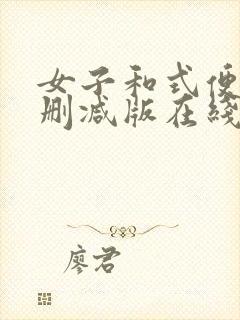 女子和式便
删减版在线
廖君